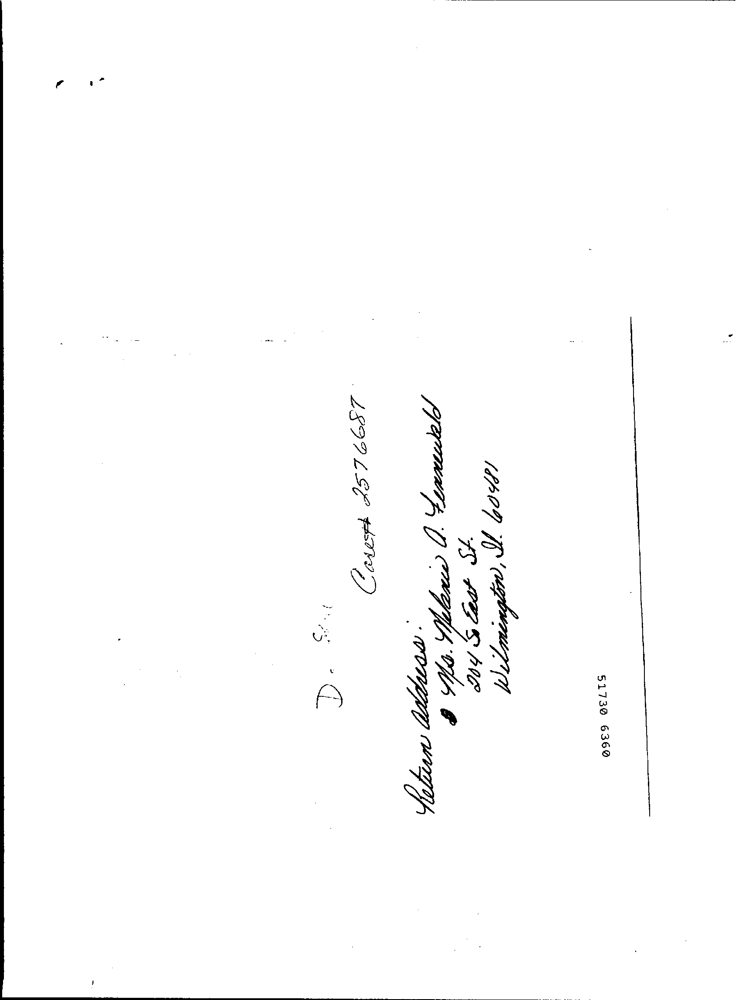 D.
Case# 2576687
Return address:
Ms. Melanie A. Fennewald
204 So East St.
Wilmington, Il. 60481
51730 6360